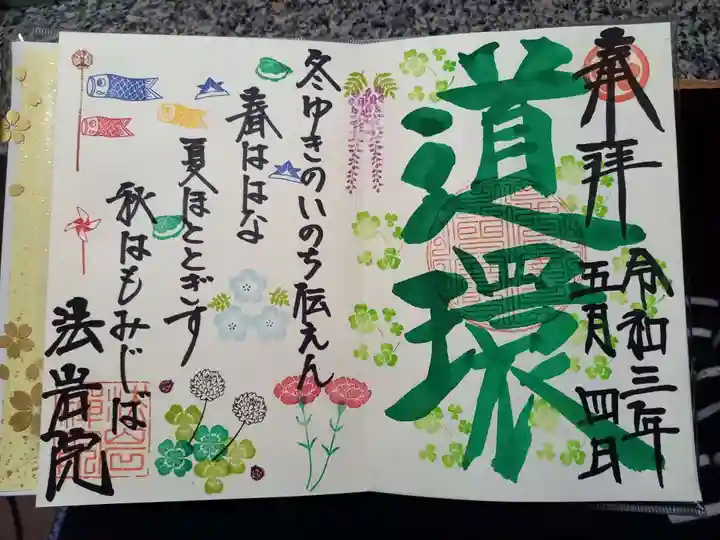 奉拝
令和三年
五月四日
道環
冬ゆきのいのち伝えん
春ははな
夏ほととぎす
秋はもみじば
法岩院